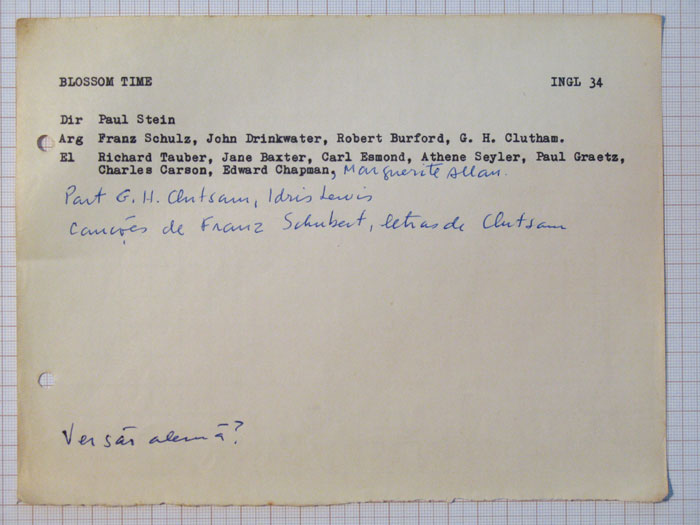 BLOSSOM TIME INGL 34
Dir Paul Stein
Arg Franz Schulz, John Drinkwater, Robert Burford, G. H. Clutham.
El Richard Tauber, Jane Baxter, Carl Esmond, Athene Seyler, Paul Graetz,
Charles Carson, Edward Chapman, Marguerite Allan.
Part G. H. Clutsam, Idris Lewis
Canções de Franz Schubert, letras de Clutsam
Versão alemã?